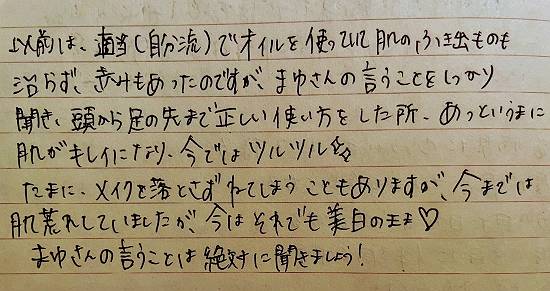 以前は、適当(自分流)でオイルを使っていて肌のふき出ものも
治らず、赤みもあったのですが、まゆさんの言うことをしっかり
聞き、頭から足の先まで正しい使い方をした所、あっというまに
肌がキレイになり、今ではツルツル☆
たまに、メイクを落とさずねてしまうこともありますが、今までは
肌荒れしていましたが、今はそれでも美白のまま♡
まゆさんの言うことは絶対に聞きましょう!